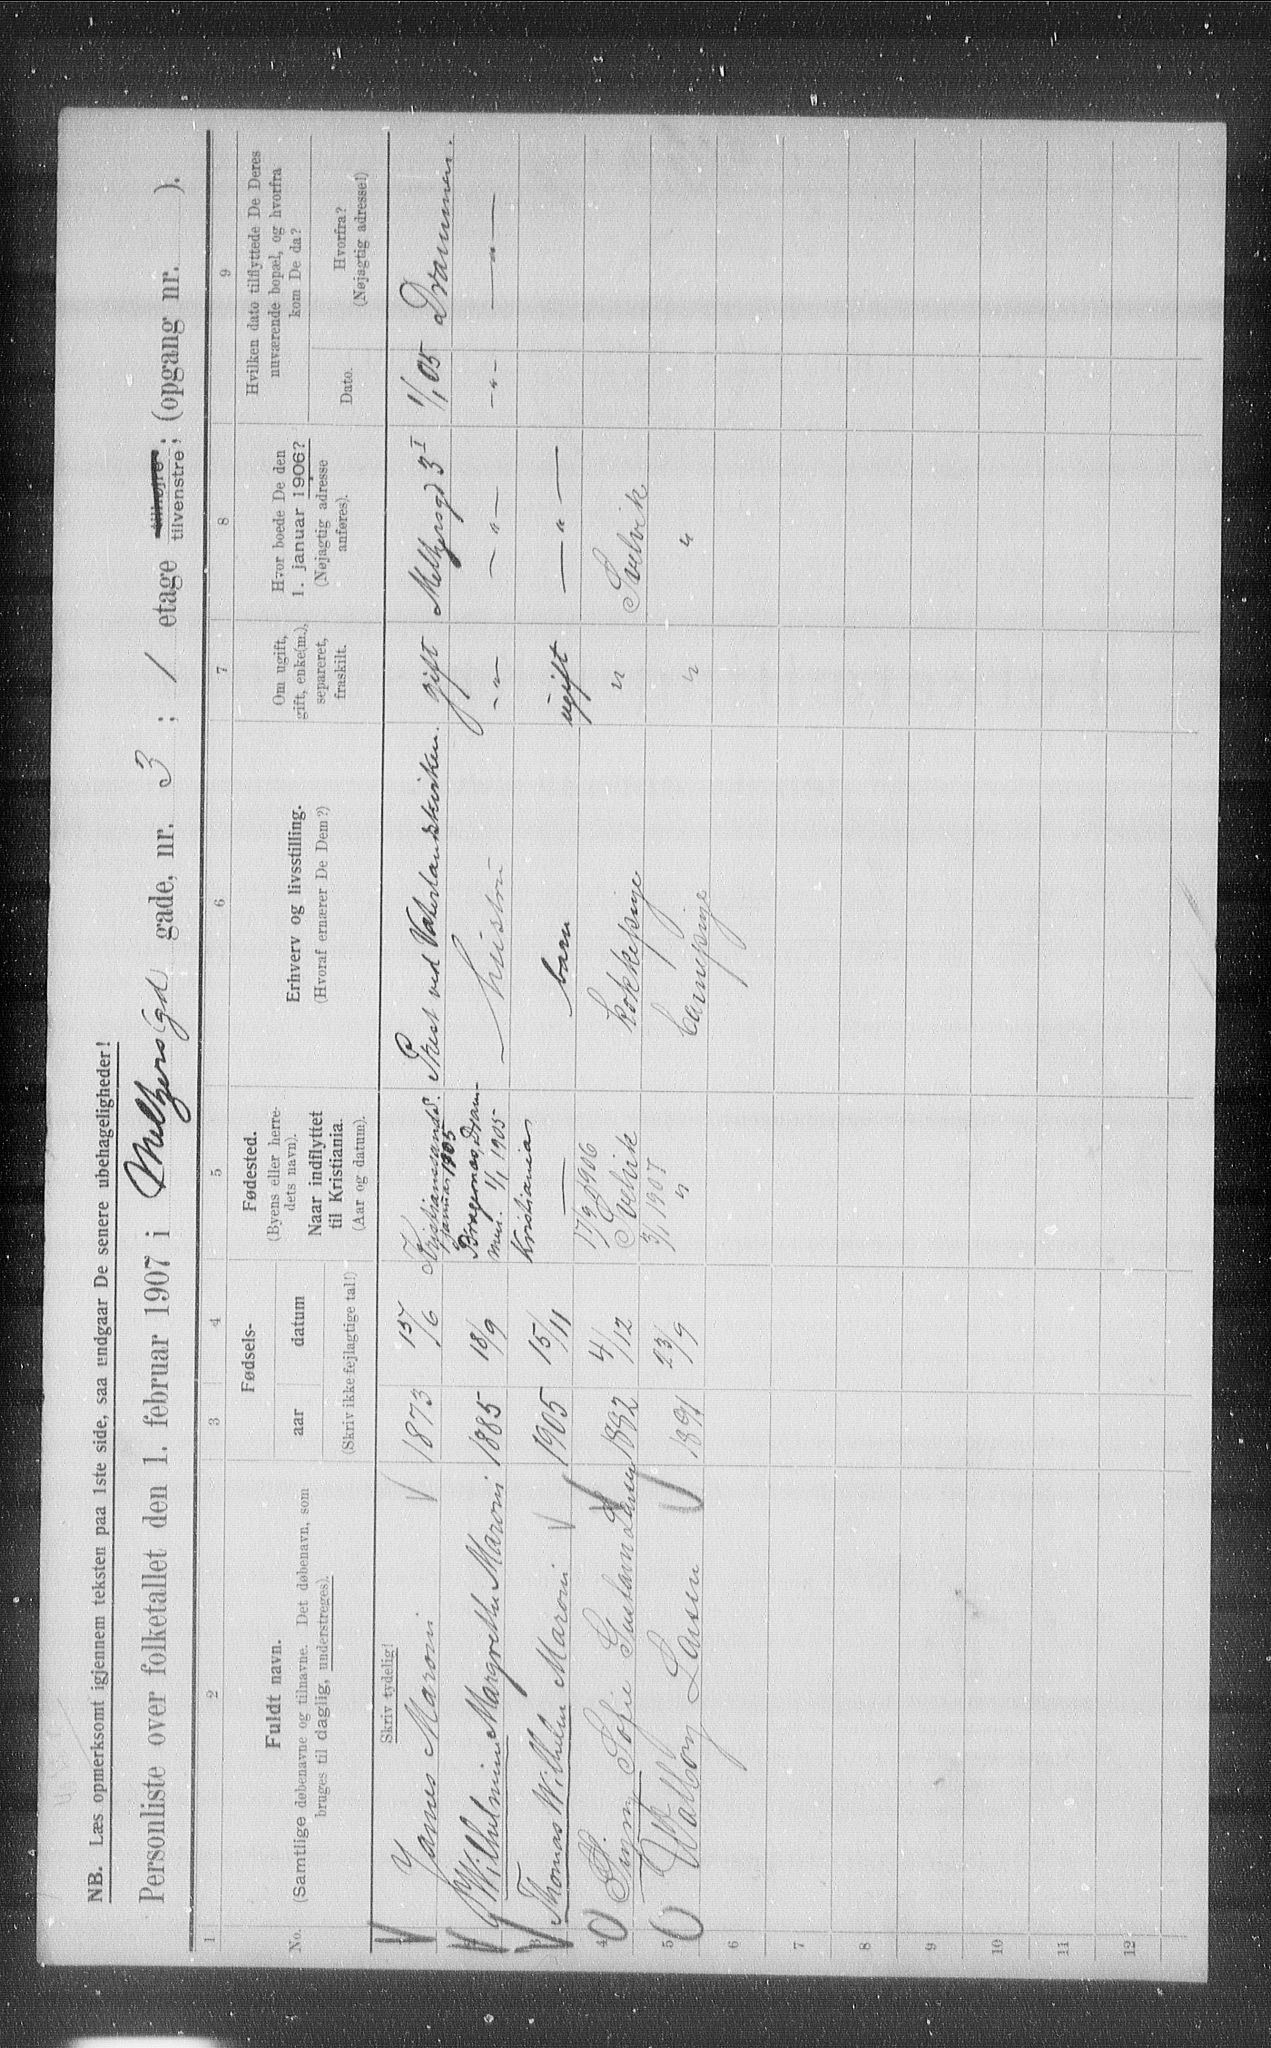 NB. Læs opmerksomt igjennem teksten paa 1ste side, saa undgaar De senere ubehageligheder!
Personliste over folketallet den 1. februar 1907 i Meltzersgd gade, nr. 3 ; 1 etage tilhøjre; tilvenstre; (opgang nr. ).
1 2 3 4 5 6 7 8 9
No.
Fuldt navn.
(Samtlige døbenavne og tilnavne. Det døbenavn, som
bruges til daglig, understreges).
Skriv tydelig!
Fødsels-
aar datum
(Skriv ikke fejlagtige tal!)
Fødested.
(Byens eller herre-
dets navn).
Naar indflyttet
til Kristiania.
(Aar og datum).
Erhverv og livsstilling.
(Hvoraf ernærer De Dem?)
Om ugift,
gift, enke(m.),
separeret,
fraskilt.
Hvor boede De den
1. januar 1906?
(Nøjagtig adresse
anføres).
Hvilken dato tilflyttede De Deres
nuværende bopæl, og hvorfra
kom De da?
Dato.
Hvorfra?
(Nøjagtig adresse!)
James Maroni 1873 15/6 Kristianssund S. januar 1905 Prest ved Vaterlandskirken. gift Meltzersgd 3 I 1/1 05 Drammen.
Wilhelmine Margrethe Maroni 1885 18/9 Bragernes, Dram-
men. 1/1 1905 hustru -"- -"- -"- -"-
3 Thomas Wilhelm Maroni 1905 15/11 Kristiania barn ugift -"-
4 Signy Sofie Gustava Larsen 1882 4/12 17/9 1906
Svelvik kokkepige " Svelvik
5 Valborg Larsen 1891 23/9 3/1 1907
" barnepige " "
6
7
8
9
10
11
12